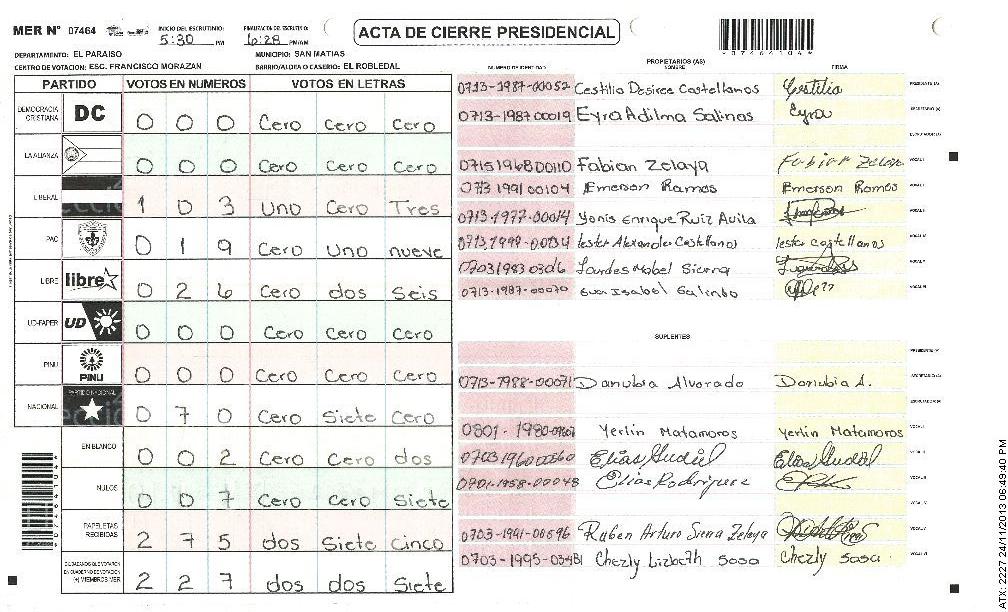 MER Nº 07464 INICIO DEL ESCRUTINIO: 5:30 PM FINALIZACIÓN DEL ESCRUTINIO: 6:28 PM/AM ACTA DE CIERRE PRESIDENCIAL
DEPARTAMENTO: EL PARAISO MUNICIPIO: SAN MATIAS
CENTRO DE VOTACION: ESC. FRANCISCO MORAZAN BARRIO/ALDEA O CASERIO: EL ROBLEDAL
PARTIDO VOTOS EN NUMEROS VOTOS EN LETRAS
DEMOCRACIA CRISTIANA DC 0 0 0 Cero Cero Cero
LA ALIANZA 0 0 0 Cero Cero Cero
LIBERAL 1 0 3 Uno Cero Tres
PAC 0 1 9 Cero Uno nueve
LIBRE libre 0 2 6 Cero dos Seis
UD-FAPER UD 0 0 0 Cero Cero Cero
PINU PINU 0 0 0 Cero Cero Cero
NACIONAL PARTIDO NACIONAL 0 7 0 Cero Siete Cero
EN BLANCO 0 0 2 Cero Cero dos
NULOS 0 0 7 Cero Cero Siete
PAPELETAS RECIBIDAS 2 7 5 dos Siete Cinco
CIUDADANOS QUE VOTARON EN CUADERNO DE VOTACION (+) MIEMBROS MER 2 2 7 dos dos Siete
NUMERO DE IDENTIDAD PROPIETARIOS (AS) NOMBRE FIRMA
0713-1987-00052 Cestilia Desiree Castellanos Cestilia
0713-1987 00019 Eyra Adilma Salinas Eyra
0715 1968 00110 Fabian Zelaya Fabian Zelaya
0713 1991 00104 Emerson Ramos Emerson Ramos
0713-1977-00014 Yonis Enrique Ruiz Avila
0713.1999-00134 lester Alexander Castellanos lester castellanos
0703 1983 Lourdes Mabel Sierra
0713-1987-00070 Isabel Galindo
SUPLENTES
0713-1988-00071 Danubia Alvorado Danubia A.
0801-1980- Yerlin Matamoros Yerlin Matamoros
0703 1960 00360 Elias Elias
1958-00048 Elias Rodriguez
0703-1991-00596 Ruben Arturo Sierra Zelaya
0703-1995-03481 Chezly Lizbeth Sosa Chezly Sosa
ATX: 2227 24/11/2013 06:49:40 PM